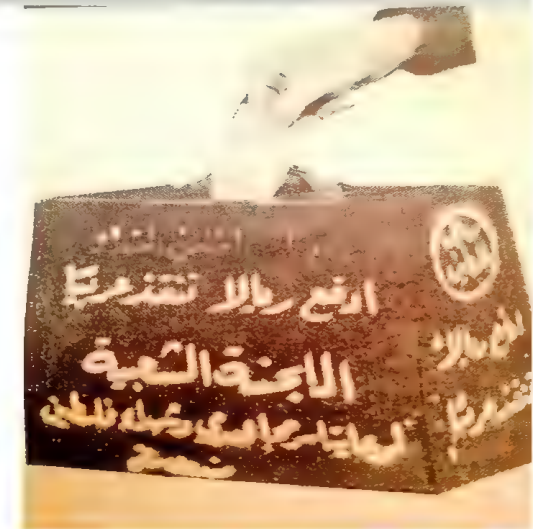 ادفع ريالا تنقذ عربيًا
اللجنة الشعبية
لرعاية أسر مجاهدي وشهداء فلسطين
ادفع ريالا
تنقذ عربيًا